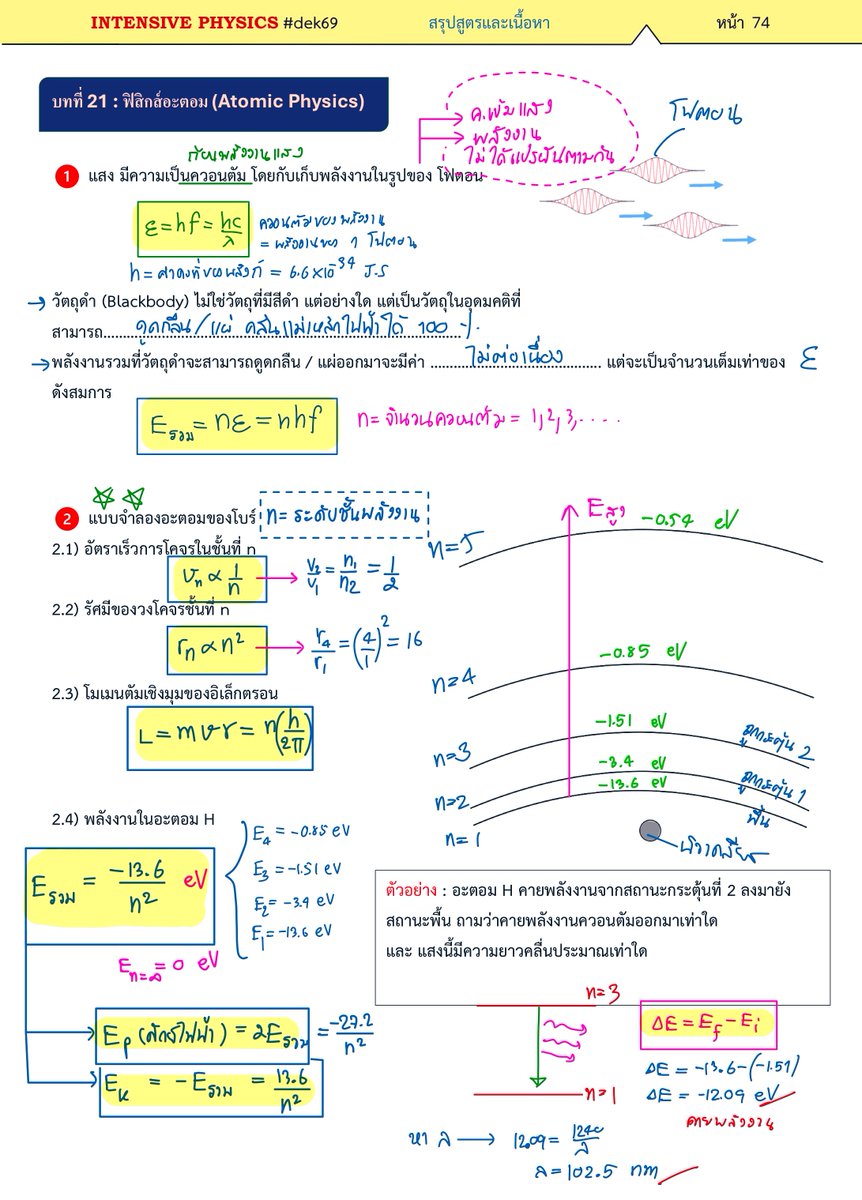 INTENSIVE PHYSICS #dek69 สรุปสูตรและเนื้อหา หน้า 74
บทที่ 21 : ฟิสิกส์อะตอม (Atomic Physics)
ค.เข้มแสง
พลังงาน
ไม่ได้แปรผันตามกัน
โฟตอน
ก้อนพลังงานแสง
1 แสง มีความเป็นควอนตัม โดยกับเก็บพลังงานในรูปของ โฟตอน
ε = hf = hc/λ
ควอนตัมของพลังงาน
= พลังงานของ 1 โฟตอน
h = ค่าคงที่ของพลังก์ = 6.6×10⁻³⁴ J.S
→ วัตถุดำ (Blackbody) ไม่ใช่วัตถุที่มีสีดำ แต่อย่างใด แต่เป็นวัตถุในอุดมคติที่
สามารถ.....ดูดกลืน / แผ่ คลื่นแม่เหล็กไฟฟ้าได้ 100 %.
→ พลังงานรวมที่วัตถุดำจะสามารถดูดกลืน / แผ่ออกมาจะมีค่า .....ไม่ต่อเนื่อง..... แต่จะเป็นจำนวนเต็มเท่าของ ε
ดังสมการ
Eรวม = nε = nhf n = จำนวนควอนตัม = 1,2,3,....
2 แบบจำลองอะตอมของโบร์ n = ระดับชั้นพลังงาน
2.1) อัตราเร็วการโคจรในชั้นที่ n
vₙ ∝ 1/n → v₂/v₁ = n₁/n₂ = 1/2
2.2) รัศมีของวงโคจรชั้นที่ n
rₙ ∝ n² → r₄/r₁ = (4/1)² = 16
2.3) โมเมนตัมเชิงมุมของอิเล็กตรอน
L = mvr = n(h/2π)
2.4) พลังงานในอะตอม H
Eรวม = -13.6/n² eV
E₄ = -0.85 eV
E₃ = -1.51 eV
E₂ = -3.4 eV
E₁ = -13.6 eV
Eₙ₌∞ = 0 eV
Eₚ (ศักย์ไฟฟ้า) = 2Eรวม = -27.2/n²
Eₖ = -Eรวม = 13.6/n²
Eสูง
n=5 -0.54 eV
n=4 -0.85 eV
n=3 -1.51 eV ถูกกระตุ้น 2
n=2 -3.4 eV ถูกกระตุ้น 1
n=1 -13.6 eV พื้น
นิวเคลียส
ตัวอย่าง : อะตอม H คายพลังงานจากสถานะกระตุ้นที่ 2 ลงมายัง
สถานะพื้น ถามว่าคายพลังงานควอนตัมออกมาเท่าใด
และ แสงนี้มีความยาวคลื่นประมาณเท่าใด
n=3
n=1
ΔE = E_f - Eᵢ
ΔE = -13.6-(-1.51)
ΔE = -12.09 eV
คายพลังงาน
หา λ → 12.09 = 1240/λ
λ = 102.5 nm